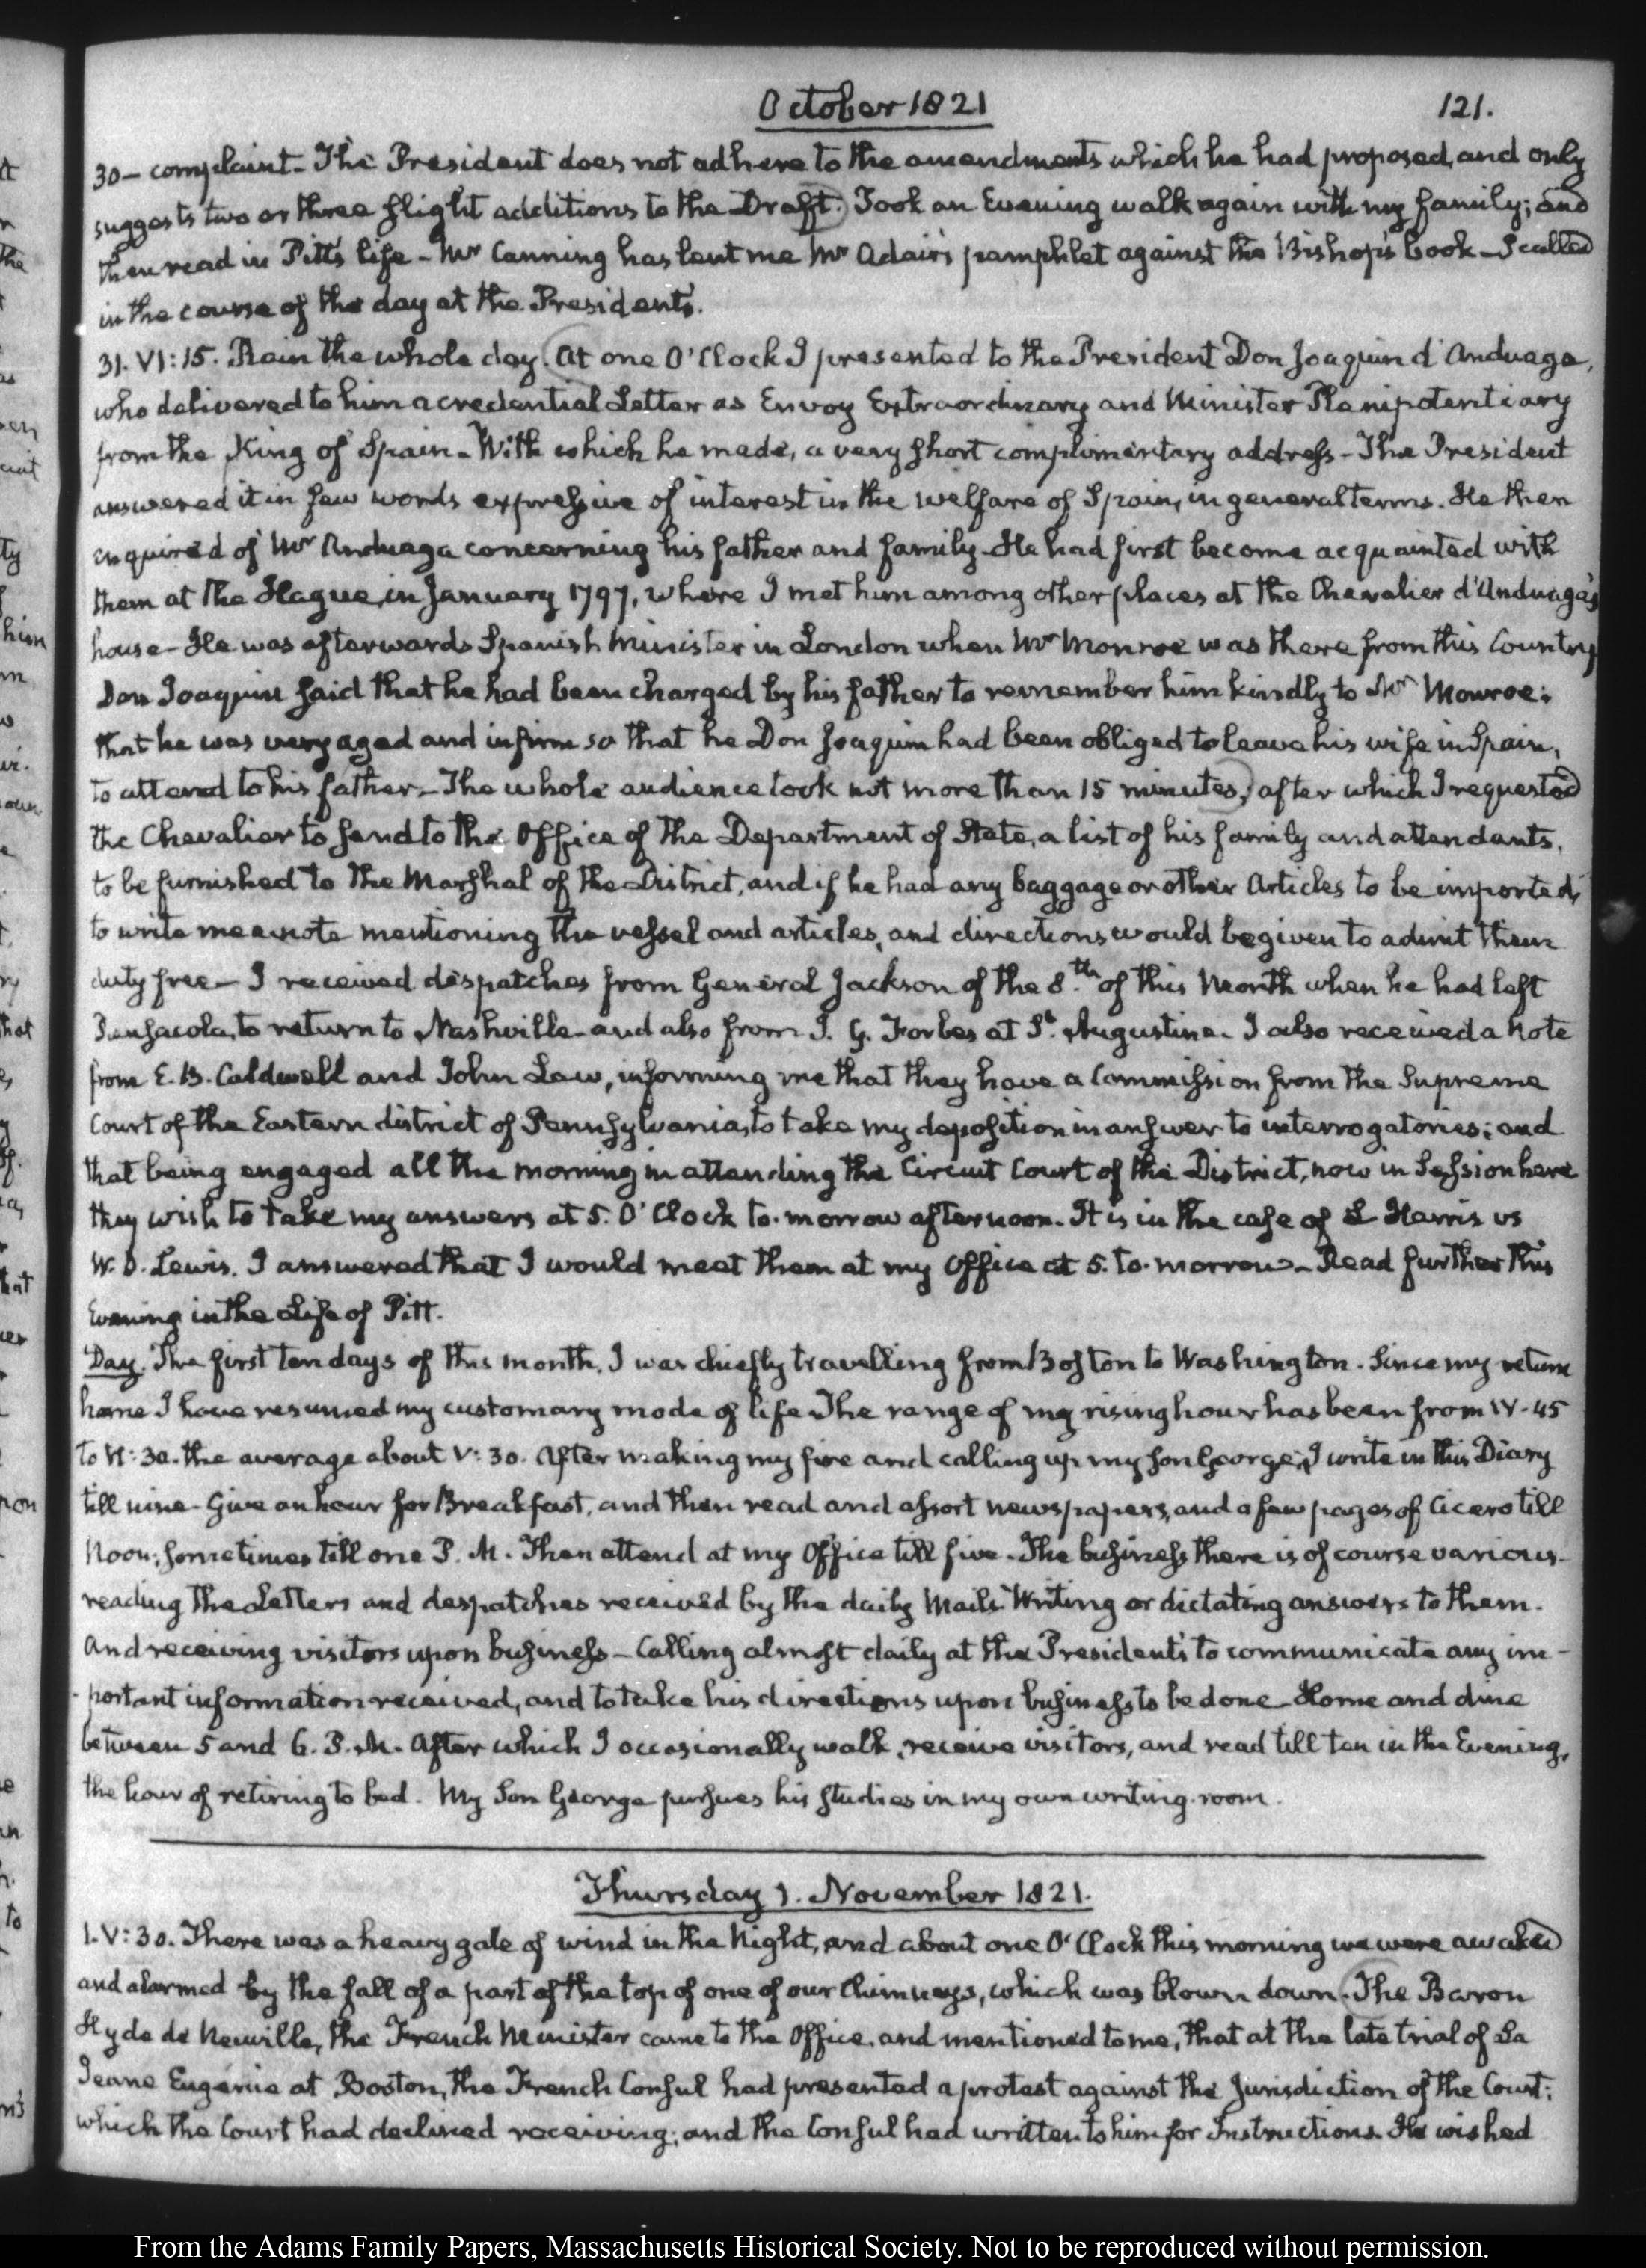 October 1821
121.
30— complaint. The President does not adhere to the amendments which he had proposed, and only
suggests two or three slight additions to the Draft. Took an Evening walk again with my family; and
then read in Pitt's life — Mr Canning has lent me Mr Adair's pamphlet against the Bishop's book — I called
in the course of the day at the President's.
31. VI:15. Rain the whole day. At one O'Clock I presented to the President Don Joaquin d'Anduaga,
who delivered to him a credential Letter as Envoy Extraordinary and Minister Plenipotentiary
from the King of Spain — With which he made, a very short complimentary address — The President
answered it in few words expressive of interest in the welfare of Spain, in general terms. He then
enquired of Mr Anduaga concerning his father and family — He had first become acquainted with
them at the Hague, in January 1797, where I met him among other places at the Chevalier d'Anduaga's
house — He was afterwards Spanish Minister in London when Mr Monroe was there from this Country
Don Joaquin said that he had been charged by his father to remember him kindly to Mr Monroe:
that he was very aged and infirm so that he Don Joaquim had been obliged to leave his wife in Spain,
to attend to his father — The whole audience took not more than 15 minutes, after which I requested
the Chevalier to send to the Office of the Department of State, a list of his family and attendants,
to be furnished to the Marshal of the District, and if he had any baggage or other Articles to be imported,
to write me a note mentioning the vessel and articles, and directions would be given to admit them
duty free — I received dispatches from General Jackson of the 8.th of this Month when he had left
Pensacola, to return to Nashville — and also from J. G. Forbes at St. Augustine. I also received a Note
from E. B. Caldwell and John Law, informing me that they have a Commission from the Supreme
Court of the Eastern district of Pennsylvania, to take my deposition in answer to interrogatories; and
that being engaged all the morning in attending the Circuit Court of the District, now in Session here
they wish to take my answers at 5. O'Clock to-morrow afternoon. It is in the case of L Harris vs
W. D. Lewis. I answered that I would meet them at my Office at 5. to-morrow — Read further this
Evening in the Life of Pitt.
Day. The first ten days of this month, I was chiefly travelling from Boston to Washington. Since my return
home I have resumed my customary mode of life. The range of my rising hour has been from IV-45
to VI:30. the average about V:30. After making my fire and calling up my Son George, I write in this Diary
till nine — Give an hour for Breakfast, and then read and assort newspapers, and a few pages of Cicero till
Noon; sometimes till one P. M. Then attend at my Office till five — The business there is of course various —
reading the Letters and despatches received by the daily Mails. Writing or dictating answers to them.
And receiving visitors upon business — Calling almost daily at the President's to communicate any im-
-portant information received, and to take his directions upon business to be done — Home and dine
between 5 and 6. P. M. After which I occasionally walk, receive visitors, and read till ten in the Evening,
the hour of retiring to bed. My Son George pursues his studies in my own writing-room.
Thursday 1. November 1821.
1. V:30. There was a heavy gale of wind in the Night, and about one O'Clock this morning we were awaked
and alarmed by the fall of a part of the top of one of our Chimneys, which was blown down. The Baron
Hyde de Neuville, the French Minister came to the Office, and mentioned to me, that at the late trial of La
Jeune Eugénie at Boston, the French Consul had presented a protest against the Jurisdiction of the Court;
which the Court had declined receiving; and the Consul had written to him for Instructions. He wished
From the Adams Family Papers, Massachusetts Historical Society. Not to be reproduced without permission.